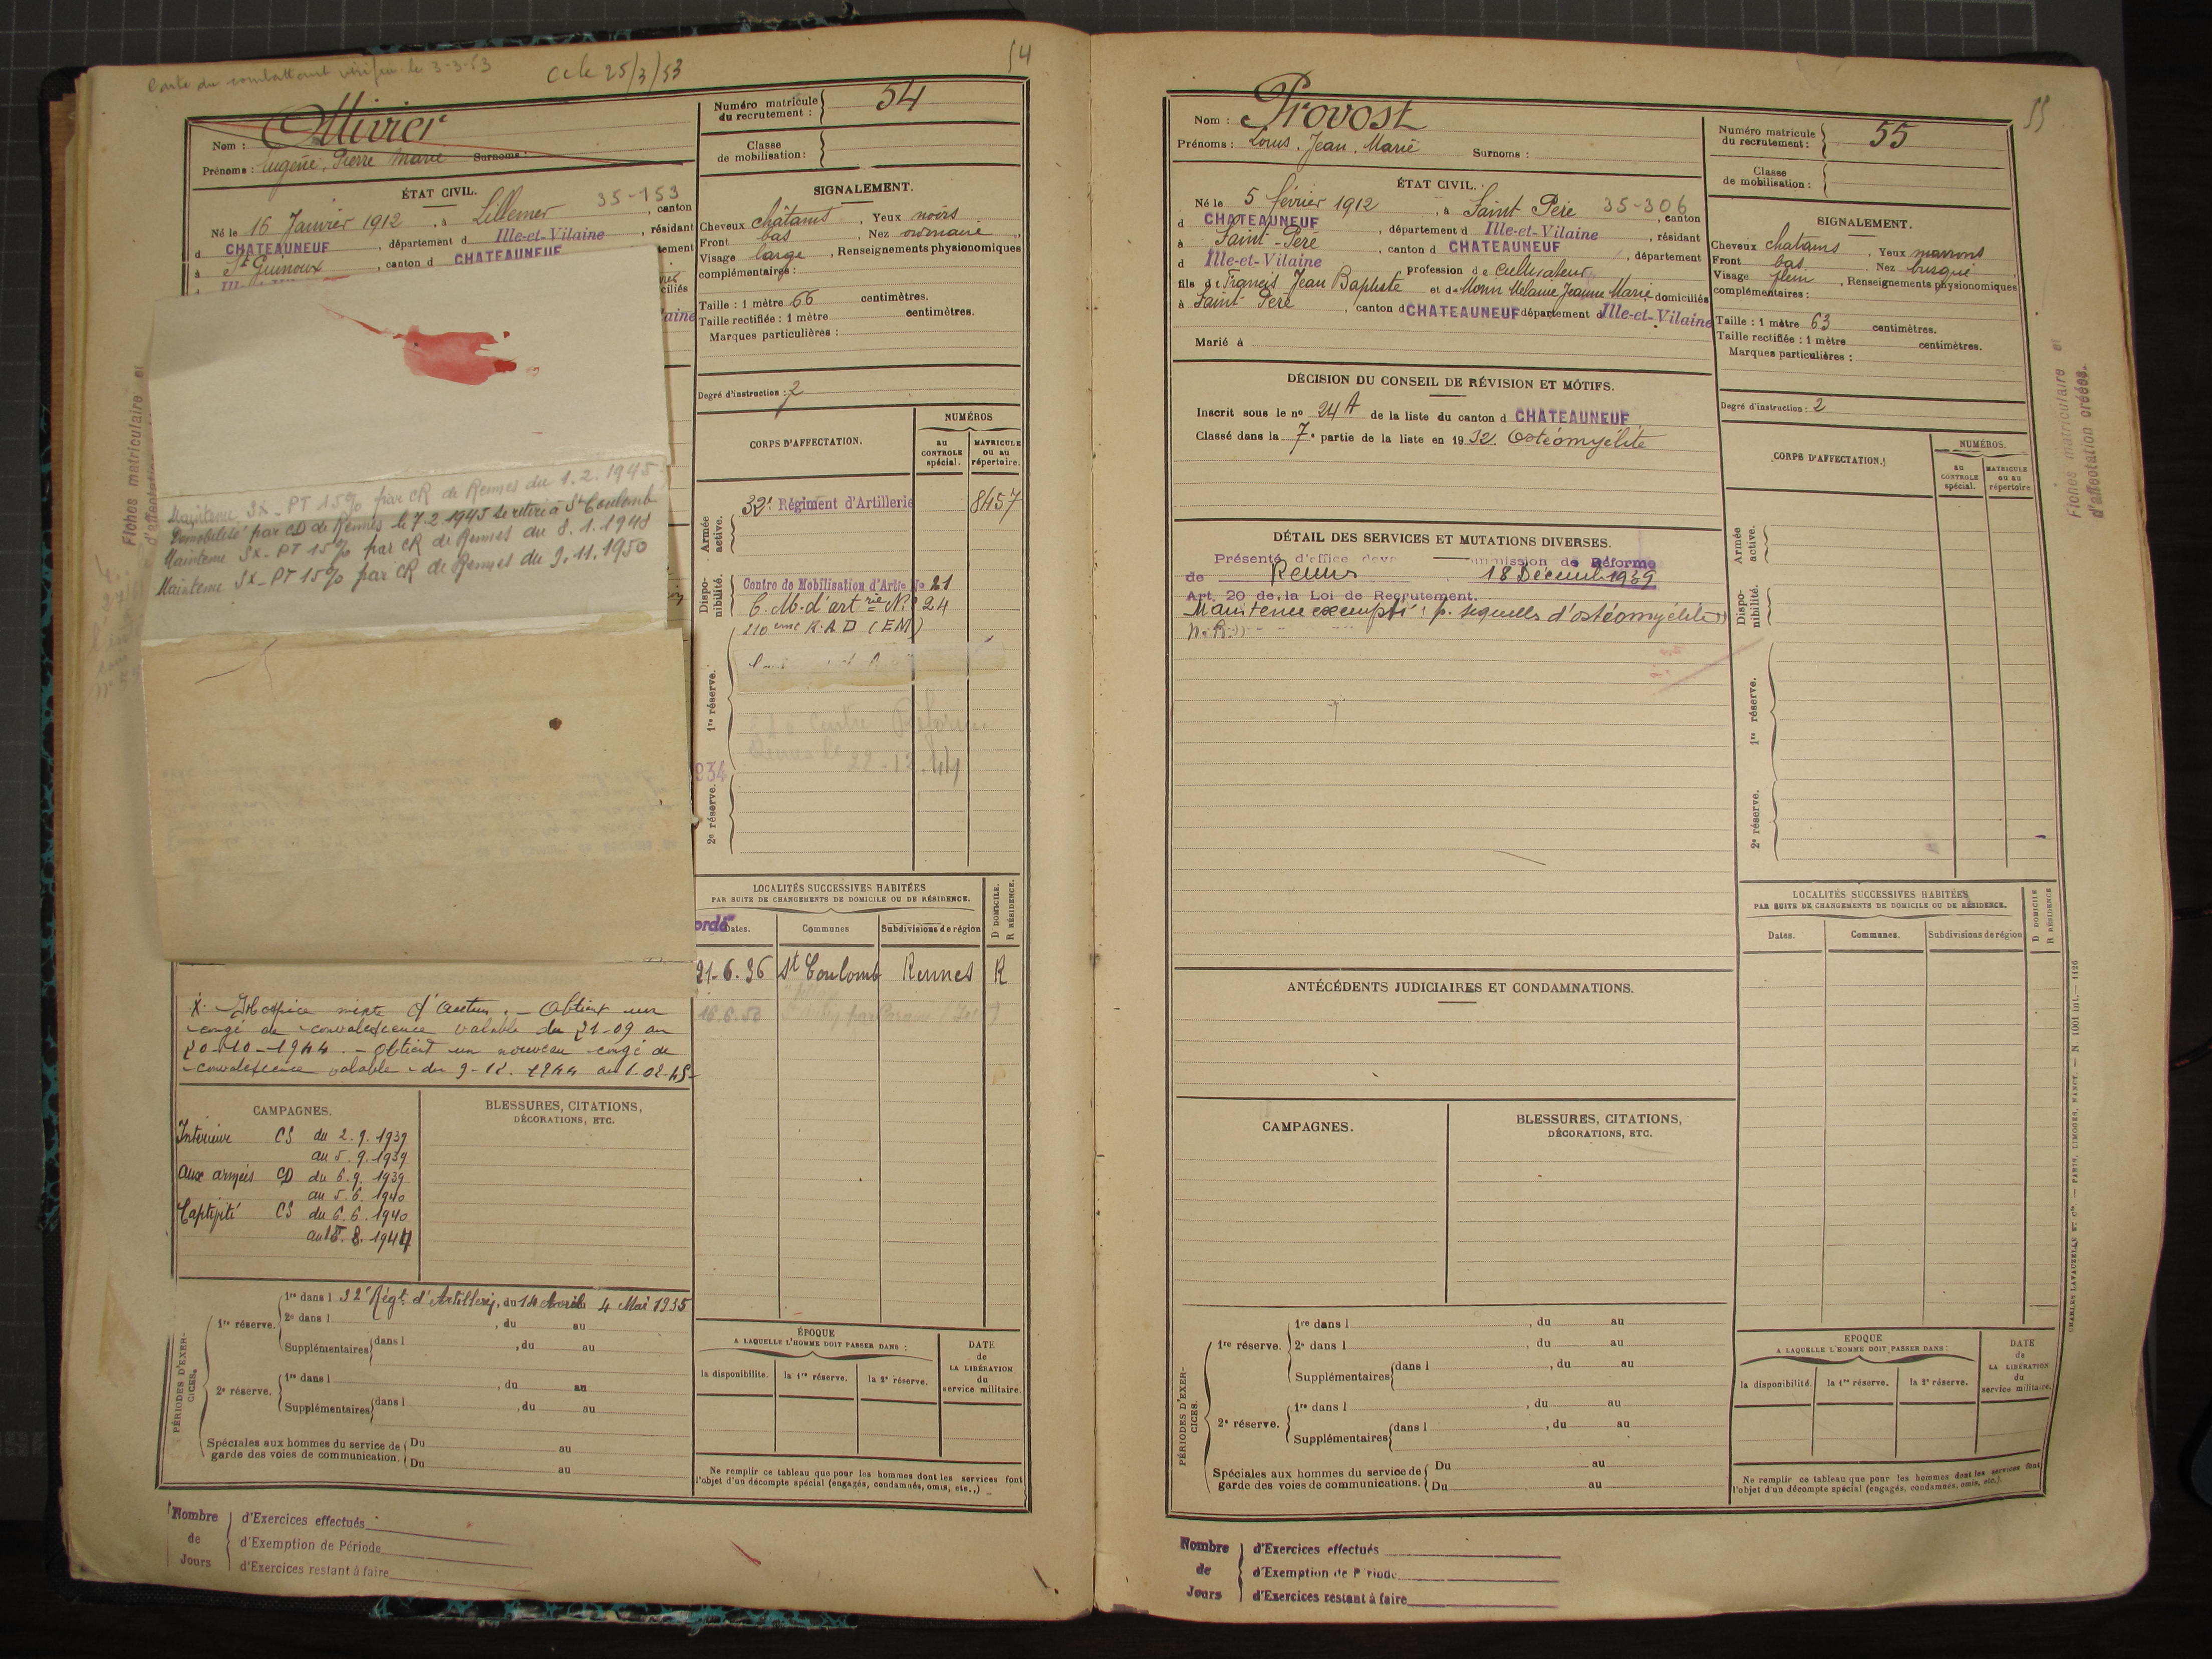 Carte du combattant vérifiée le 3-3-53
CC le 25/3/53
54
Nom : Ollivier
Prénoms : Eugène, Pierre Marie Surnoms :
ÉTAT CIVIL.
35-153
Né le 16 Janvier 1912, à Lillemer, canton
d CHATEAUNEUF, département d Ille-et-Vilaine, résidant
à St Guinoux, canton d CHATEAUNEUF
Numéro matricule du recrutement : 54
Classe de mobilisation :
SIGNALEMENT.
Cheveux châtains, Yeux noirs
Front bas, Nez ordinaire,
Visage large, Renseignements physionomiques
complémentaires :
Taille : 1 mètre 66 centimètres.
Taille rectifiée : 1 mètre centimètres.
Marques particulières :
Degré d'instruction : 2
Fiches matriculaire et
d'affectation
Maintenu SX - PT 15% par CR de Rennes du 1.2.1945.
Démobilisé par CD de Rennes le 7.2.1945 se retire à St Coulomb
Maintenu SX - PT 15% par CR de Rennes du 8.1.1948
Maintenu SX - PT 15% par CR de Rennes du 9.11.1950
CORPS D'AFFECTATION.
NUMÉROS
au CONTROLE spécial.
MATRICULE ou au répertoire.
Armée active.
32e Régiment d'Artillerie 8457
Disponibilité.
Centre de Mobilisation d'Artie No 21
C. M. d'artrie No 24
210eme R.A.D (EM)
1re réserve.
Centre Réforme
22-12.44
2e réserve.
LOCALITÉS SUCCESSIVES HABITÉES
PAR SUITE DE CHANGEMENTS DE DOMICILE OU DE RÉSIDENCE.
Dates. Communes Subdivisions de région D DOMICILE. R RÉSIDENCE.
21-6.36 St Coulomb Rennes R
X - Hospice mixte d'Autun. - Obtient un
congé de convalescence valable du 21-09 au
20-10-1944. - Obtient un nouveau congé de
convalescence valable du 9-12.1944 au 1.02.45-
CAMPAGNES.
BLESSURES, CITATIONS,
DÉCORATIONS, ETC.
Intérieur CS du 2.9.1939
au 5.9.1939
Aux armées CD du 6.9.1939
au 5.6.1940
Captivité CS du 6.6.1940
au 18.8.1944
PÉRIODES D'EXERCICES.
1re réserve.
1re dans l 32e Régt d'Artillerie, du 14 Avril 4 Mai 1935
2e dans l , du au
Supplémentaires dans l , du au
2e réserve.
1re dans l , du au
Supplémentaires dans l , du au
Spéciales aux hommes du service de garde des voies de communication.
Du au
Du au
ÉPOQUE
A LAQUELLE L'HOMME DOIT PASSER DANS :
la disponibilité. la 1re réserve. la 2e réserve.
DATE de LA LIBÉRATION du service militaire.
Ne remplir ce tableau que pour les hommes dont les services font
l'objet d'un décompte spécial (engagés, condamnés, omis, etc.,)
Nombre de Jours
d'Exercices effectués
d'Exemption de Période
d'Exercices restant à faire
55
Nom : Provost
Prénoms : Louis, Jean, Marie Surnoms :
ÉTAT CIVIL.
Né le 5 février 1912, à Saint Père 35-306, canton
d CHATEAUNEUF, département d Ille-et-Vilaine, résidant
à Saint-Père, canton d CHATEAUNEUF, département
d Ille-et-Vilaine, profession de cultivateur
fils de Francis Jean Baptiste et de Monier Mélanie Jeanne Marie domiciliés
à Saint Père, canton d CHATEAUNEUF département d Ille-et-Vilaine
Marié à
Numéro matricule du recrutement : 55
Classe de mobilisation :
SIGNALEMENT.
Cheveux chatains, Yeux marrons
Front bas, Nez busqué,
Visage plein, Renseignements physionomiques
complémentaires :
Taille : 1 mètre 63 centimètres.
Taille rectifiée : 1 mètre centimètres.
Marques particulières :
Degré d'instruction : 2
Fiches matriculaire et
d'affectation créées.
DÉCISION DU CONSEIL DE RÉVISION ET MOTIFS.
Inscrit sous le no 24 A de la liste du canton d CHATEAUNEUF
Classé dans la 7e partie de la liste en 1932. Ostéomyélite
DÉTAIL DES SERVICES ET MUTATIONS DIVERSES.
Présenté d'office devant Commission de Réforme
de Rennes 18 Décemb 1939
Art. 20 de la Loi de Recrutement.
Maintenu exempté : p. séquelles d'ostéomyélite
N.R.
CORPS D'AFFECTATION.
NUMÉROS.
au CONTROLE spécial.
MATRICULE ou au répertoire
Armée active.
Disponibilité.
1re réserve.
2e réserve.
ANTÉCÉDENTS JUDICIAIRES ET CONDAMNATIONS.
LOCALITÉS SUCCESSIVES HABITÉES
PAR SUITE DE CHANGEMENTS DE DOMICILE OU DE RÉSIDENCE.
Dates. Communes. Subdivisions de région D DOMICILE R RÉSIDENCE
CAMPAGNES.
BLESSURES, CITATIONS,
DÉCORATIONS, ETC.
PÉRIODES D'EXERCICES.
1re réserve.
1re dans l , du au
2e dans l , du au
Supplémentaires dans l , du au
2e réserve.
1re dans l , du au
Supplémentaires dans l , du au
Spéciales aux hommes du service de garde des voies de communications.
Du au
Du au
EPOQUE
A LAQUELLE L'HOMME DOIT PASSER DANS :
la disponibilité. la 1re réserve. la 2e réserve.
DATE de LA LIBÉRATION du service militaire.
Ne remplir ce tableau que pour les hommes dont les services font
l'objet d'un décompte spécial (engagés, condamnés, omis, etc.).
CHARLES LAVAUZELLE ET Cie — PARIS, LIMOGES, NANCY. — N. 1001 int.— 1126
Nombre de Jours
d'Exercices effectués
d'Exemption de Période
d'Exercices restant à faire